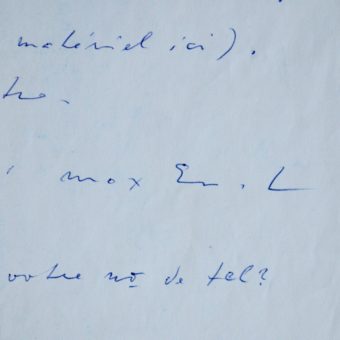 matériel ici).
tre.
, max En. L
votre no de tel?